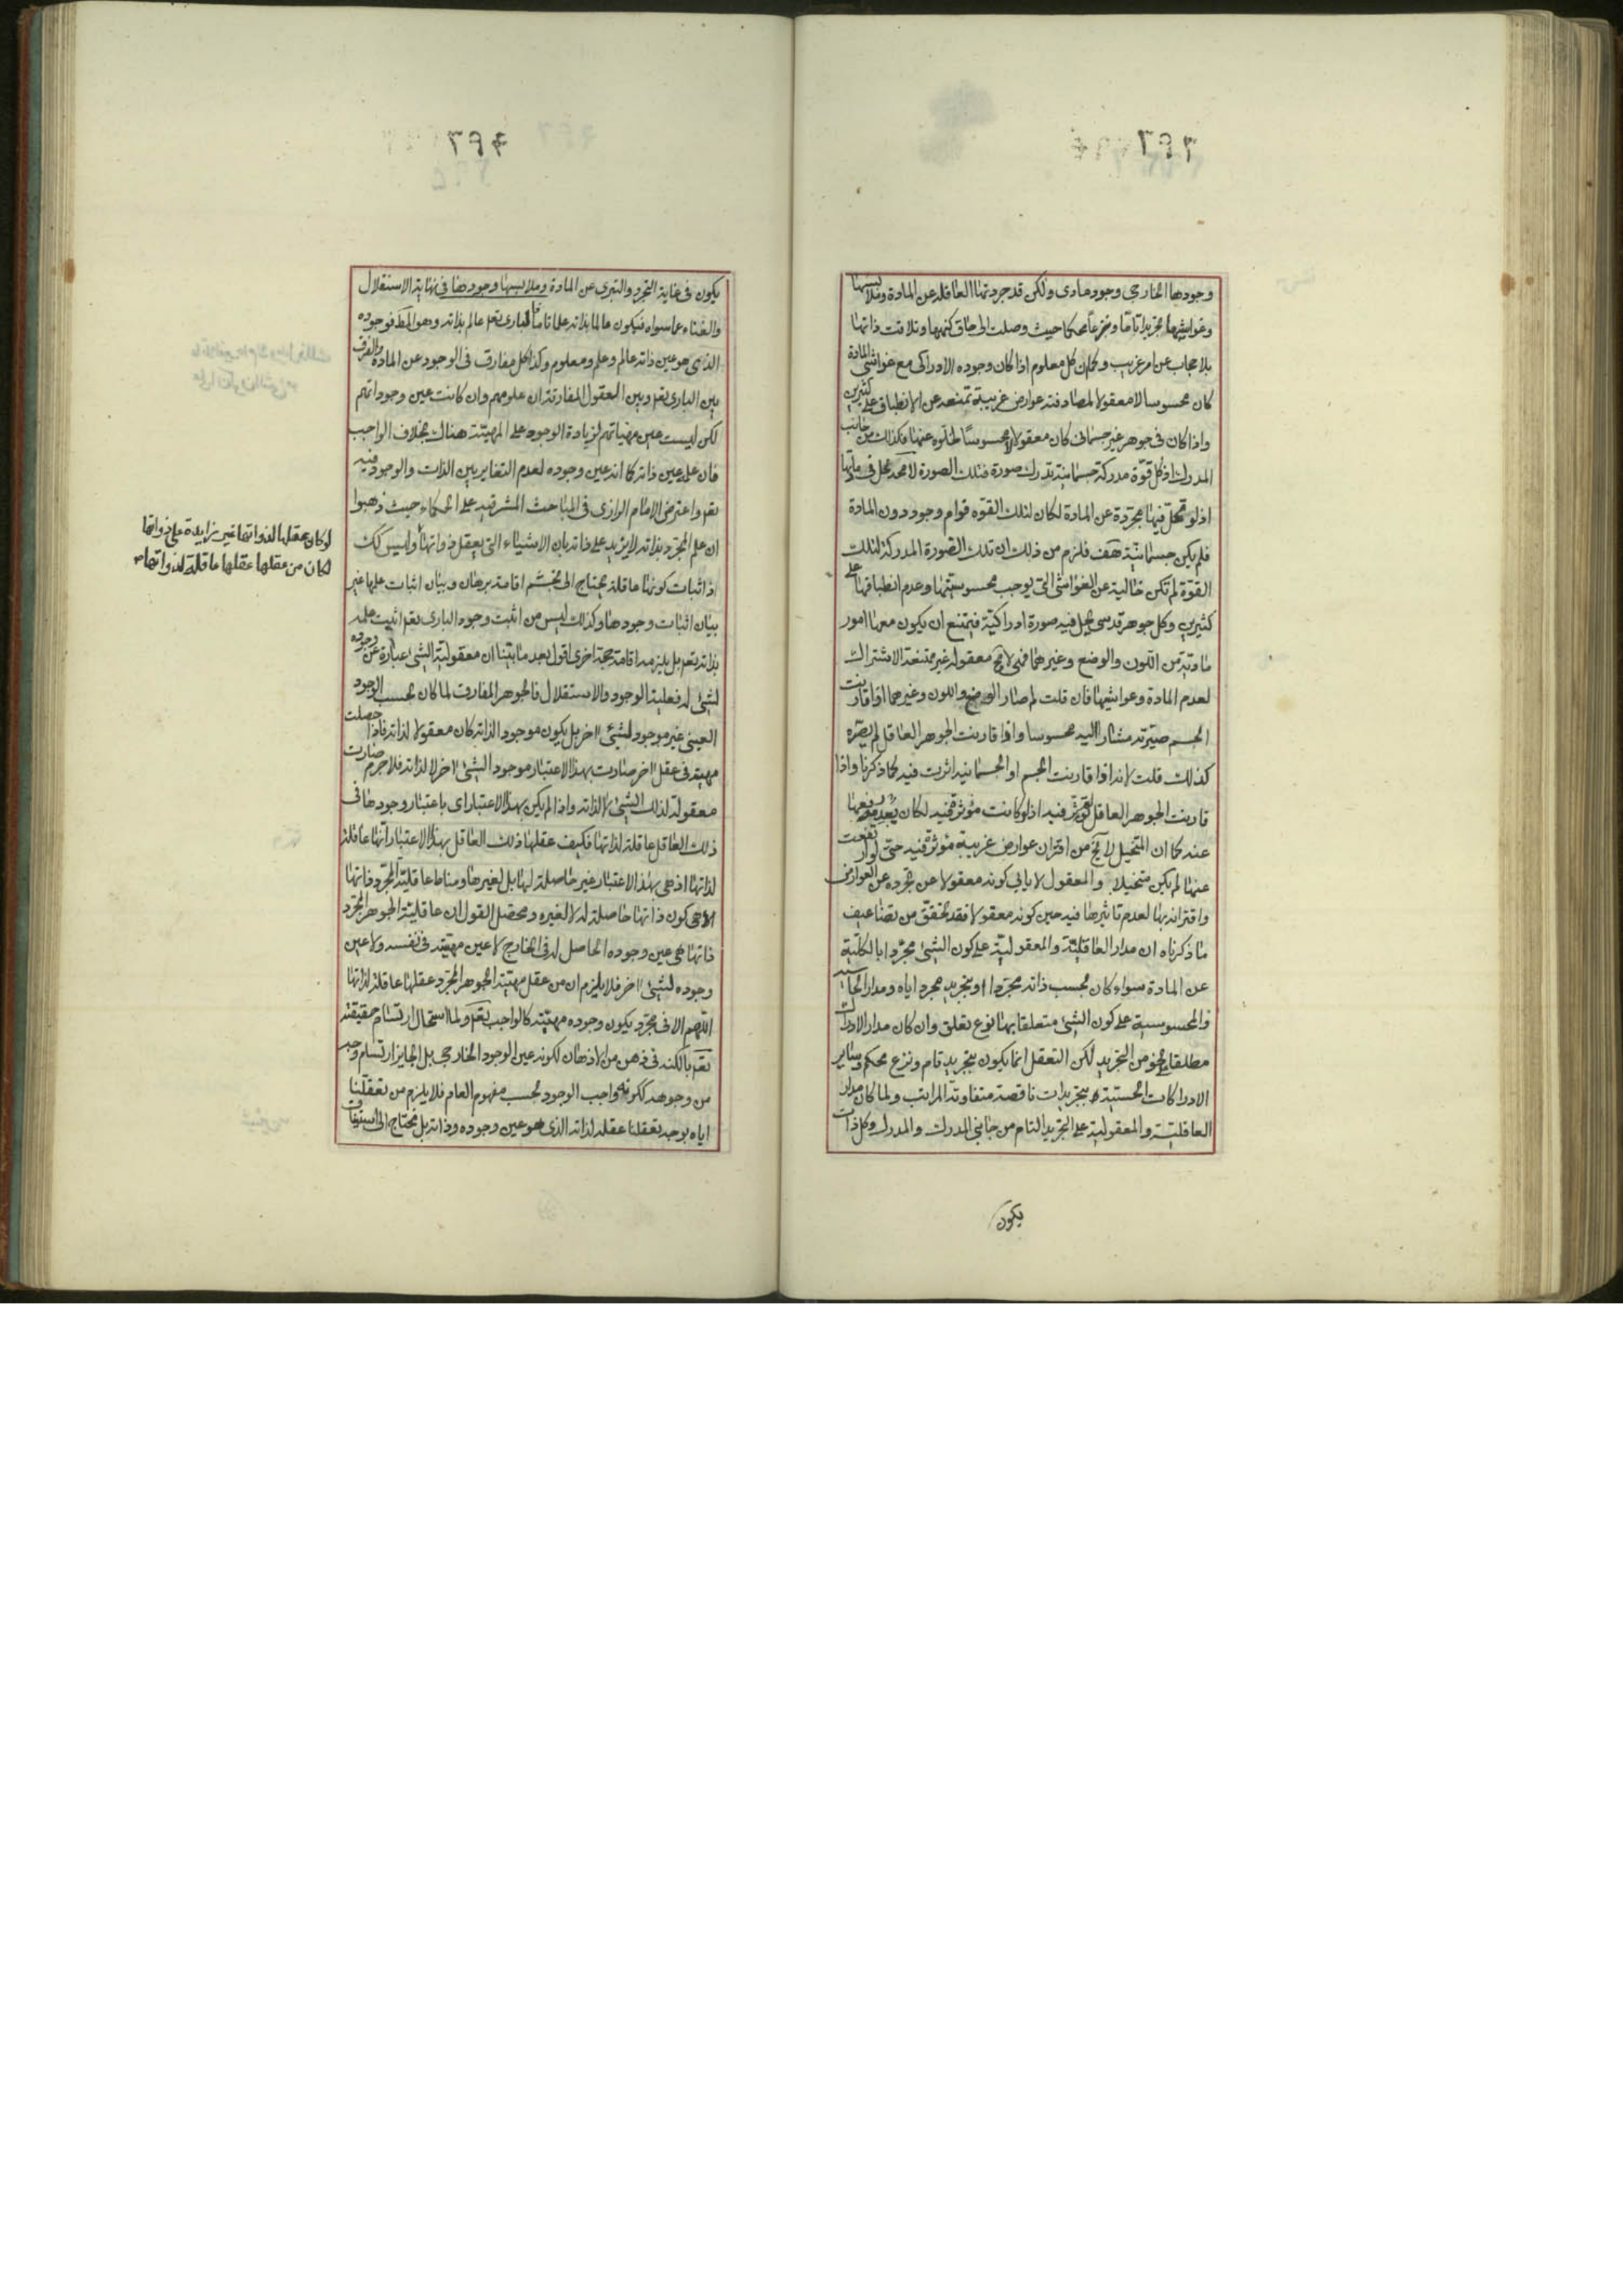 وجودها الخارجى وجود مادى ولكن قد جردتها العاقلة عن المادة وملابستها
وغواشيها تجريدا تاما ونزعا محكما حيث وصلت الى حاق كنهها وتلاقت ذاتها
بلا حجاب عن امر غريب وكما ان كل معلوم اذا كان وجوده الادراكى مع غواشى المادة
كان محسوسا لا معقولا لمصادفته عوارض غريبة تمنعه عن الانطباق على كثيرين
واذا كان فى جوهر غير جسمانى كان معقولا لا محسوسا لخلوه عنها فكذلك من جانب
المدرك اذ كل قوة مدركة جسمانية تدرك صورة فتلك الصورة لا محة تحل فى مادتها
اذ لو تحل فيها مجردة عن المادة لكان لتلك القوه قوام وجود دون المادة
فلم يكن جسمانية هف فلزم من ذلك ان تلك الصورة المدركة لتلك
القوة لم تكن خالية عن الغواشى التى يوجب محسوسيتها وعدم انطباقها على
كثيرين وكل جوهر قدسى يحل فيه صورة ادراكية فيمتنع ان يكون معها امور
مادية من اللون والوضع وغيرهما فهى لا مح معقولة غير ممتنعة الاشتراك
لعدم المادة وغواشيها فان قلت لم صار الوضع واللون وغيرهما اذا قارنت
الجسم صيرته مشارا اليه محسوسا واذا قارنت الجوهر العاقل لم يصيره
كذلك قلت لانه اذا قارنت الجسم او الجسمانيه اثرت فيه كما ذكرنا واذا
قارنت الجوهر العاقل لم تؤثر فيه اذ لو كانت مؤثرة فيه لكان
عنده كما ان المتخيل لا يخ من اقتران عوارض غريبة مؤثرة فيه حتى لو ارتفعت
عنها لم يكن متخيلا والمعقول لا يابى كونه معقولا عن تجرده عن العوارض
واقترانه بها لعدم تاثيرها فيه حين كونه معقولا فقد تحقق من تضاعيف
ما ذكرناه ان مدار العاقلية والمعقولية على كون الشئ مجردا بالكلية
عن المادة سواء كان بحسب ذاته مجردا او بتجريد مجرد اياه ومدار الحاسية
والمحسوسية على كون الشئ متعلقا بها نوع تعلق وان كان مدار الادراك
مطلقا على نحو من التجريد لكن التعقل انما يكون بتجريد تام ونزع محكم وساير
الادراكات الحسية بتجريدات ناقصة متفاوتة المراتب ولما كان مدار
العاقلية والمعقولية على التجريد التام من جانبى المدرك والمدرك وكل ذات
يكون
يكون فى غاية التجرد والتبرى عن المادة وملابسها وجودها فى نهاية الاستقلال
والغناء عما سواه فيكون عالما بذاته علما تاما فالبارى تعم عالم بذاته وهو المط فوجوده
الذى هو عين ذاته عالم وعلم ومعلوم وكذا كل مفارق فى الوجود عن المادة والفرق
بين البارى تعم وبين العقول المفارقة ان علومهم وان كانت عين وجوداتهم
لكن ليست عين مهياتهم لزيادة الوجود على المهية هناك بخلاف الواجب
فان علمه عين ذاته كما انه عين وجوده لعدم التغاير بين الذات والوجود فيه
تعم واعترض الامام الرازى فى المباحث المشرقيه على الحكماء حيث ذهبوا
ان علم المجرد بذاته لا يزيد على ذاته بان الاشياء التى يعقل ذواتها وليس كك
اذ اثبات كونها عاقلة يحتاج الى تجشم اقامة برهان وبيان اثبات علمها غير
بيان اثبات وجودها وكذلك ليس من اثبت وجود البارى تعم اثبت علمه
بذاته تعم بل يلزمه اقامة حجة اخرى اقول بعد ما بينا ان معقولية الشئ عبارة عن وجوده
لشئ له فعلية الوجود والاستقلال فالجوهر المفارق لما كان بحسب الوجود
العينى غير موجود لشئ اخر بل يكون موجود الذاته كان معقولا لذاته فاذا حصلت
مهيته فى عقل اخر صارت بهذا الاعتبار موجود الشئ اخر لا لذاته فلا جرم صارت
معقولة لذلك الشئ لا لذاته واذا لم يكن بهذا الاعتبار اى باعتبار وجودها فى
ذلك العاقل عاقلة لذاتها فكيف عقلها ذلك العاقل بهذا الاعتبار انها عاقلة
لذاتها اذ هى بهذا الاعتبار غير حاصلة لها بل لغيرها ومناط عاقلية المجرد ذاتها
الا هى كون ذاتها حاصلة له لا لغيره ومحصل القول ان عاقلية الجوهر المجرد
ذاتها هى عين وجوده الحاصل له فى الخارج لا عين مهيته فى نفسه ولا عين
وجوده لشئ اخر فلا يلزم ان من عقل مهية الجوهر المجرد عقلها عاقلة لذاتها
اللهم الا فى مجرد يكون وجوده مهيته كالواجب تعم ولما استحال ارتسام حقيقته
تعم بالكنه فى ذهن من الاذهان لكونه عين الوجود الخارجى بل الجايز ارتسام وجه
من وجوهه ككونه واجب الوجود بحسب مفهوم العام فلا يلزم من تعقلنا
اياه بوجه تعقلنا عقله لذاته الذى هو عين وجوده وذاته بل نحتاج الى استيناف
لو كان عقلها لذواتها غير زايدة على ذواتها
لكان من عقلها عقلها عاقلة لذواتها